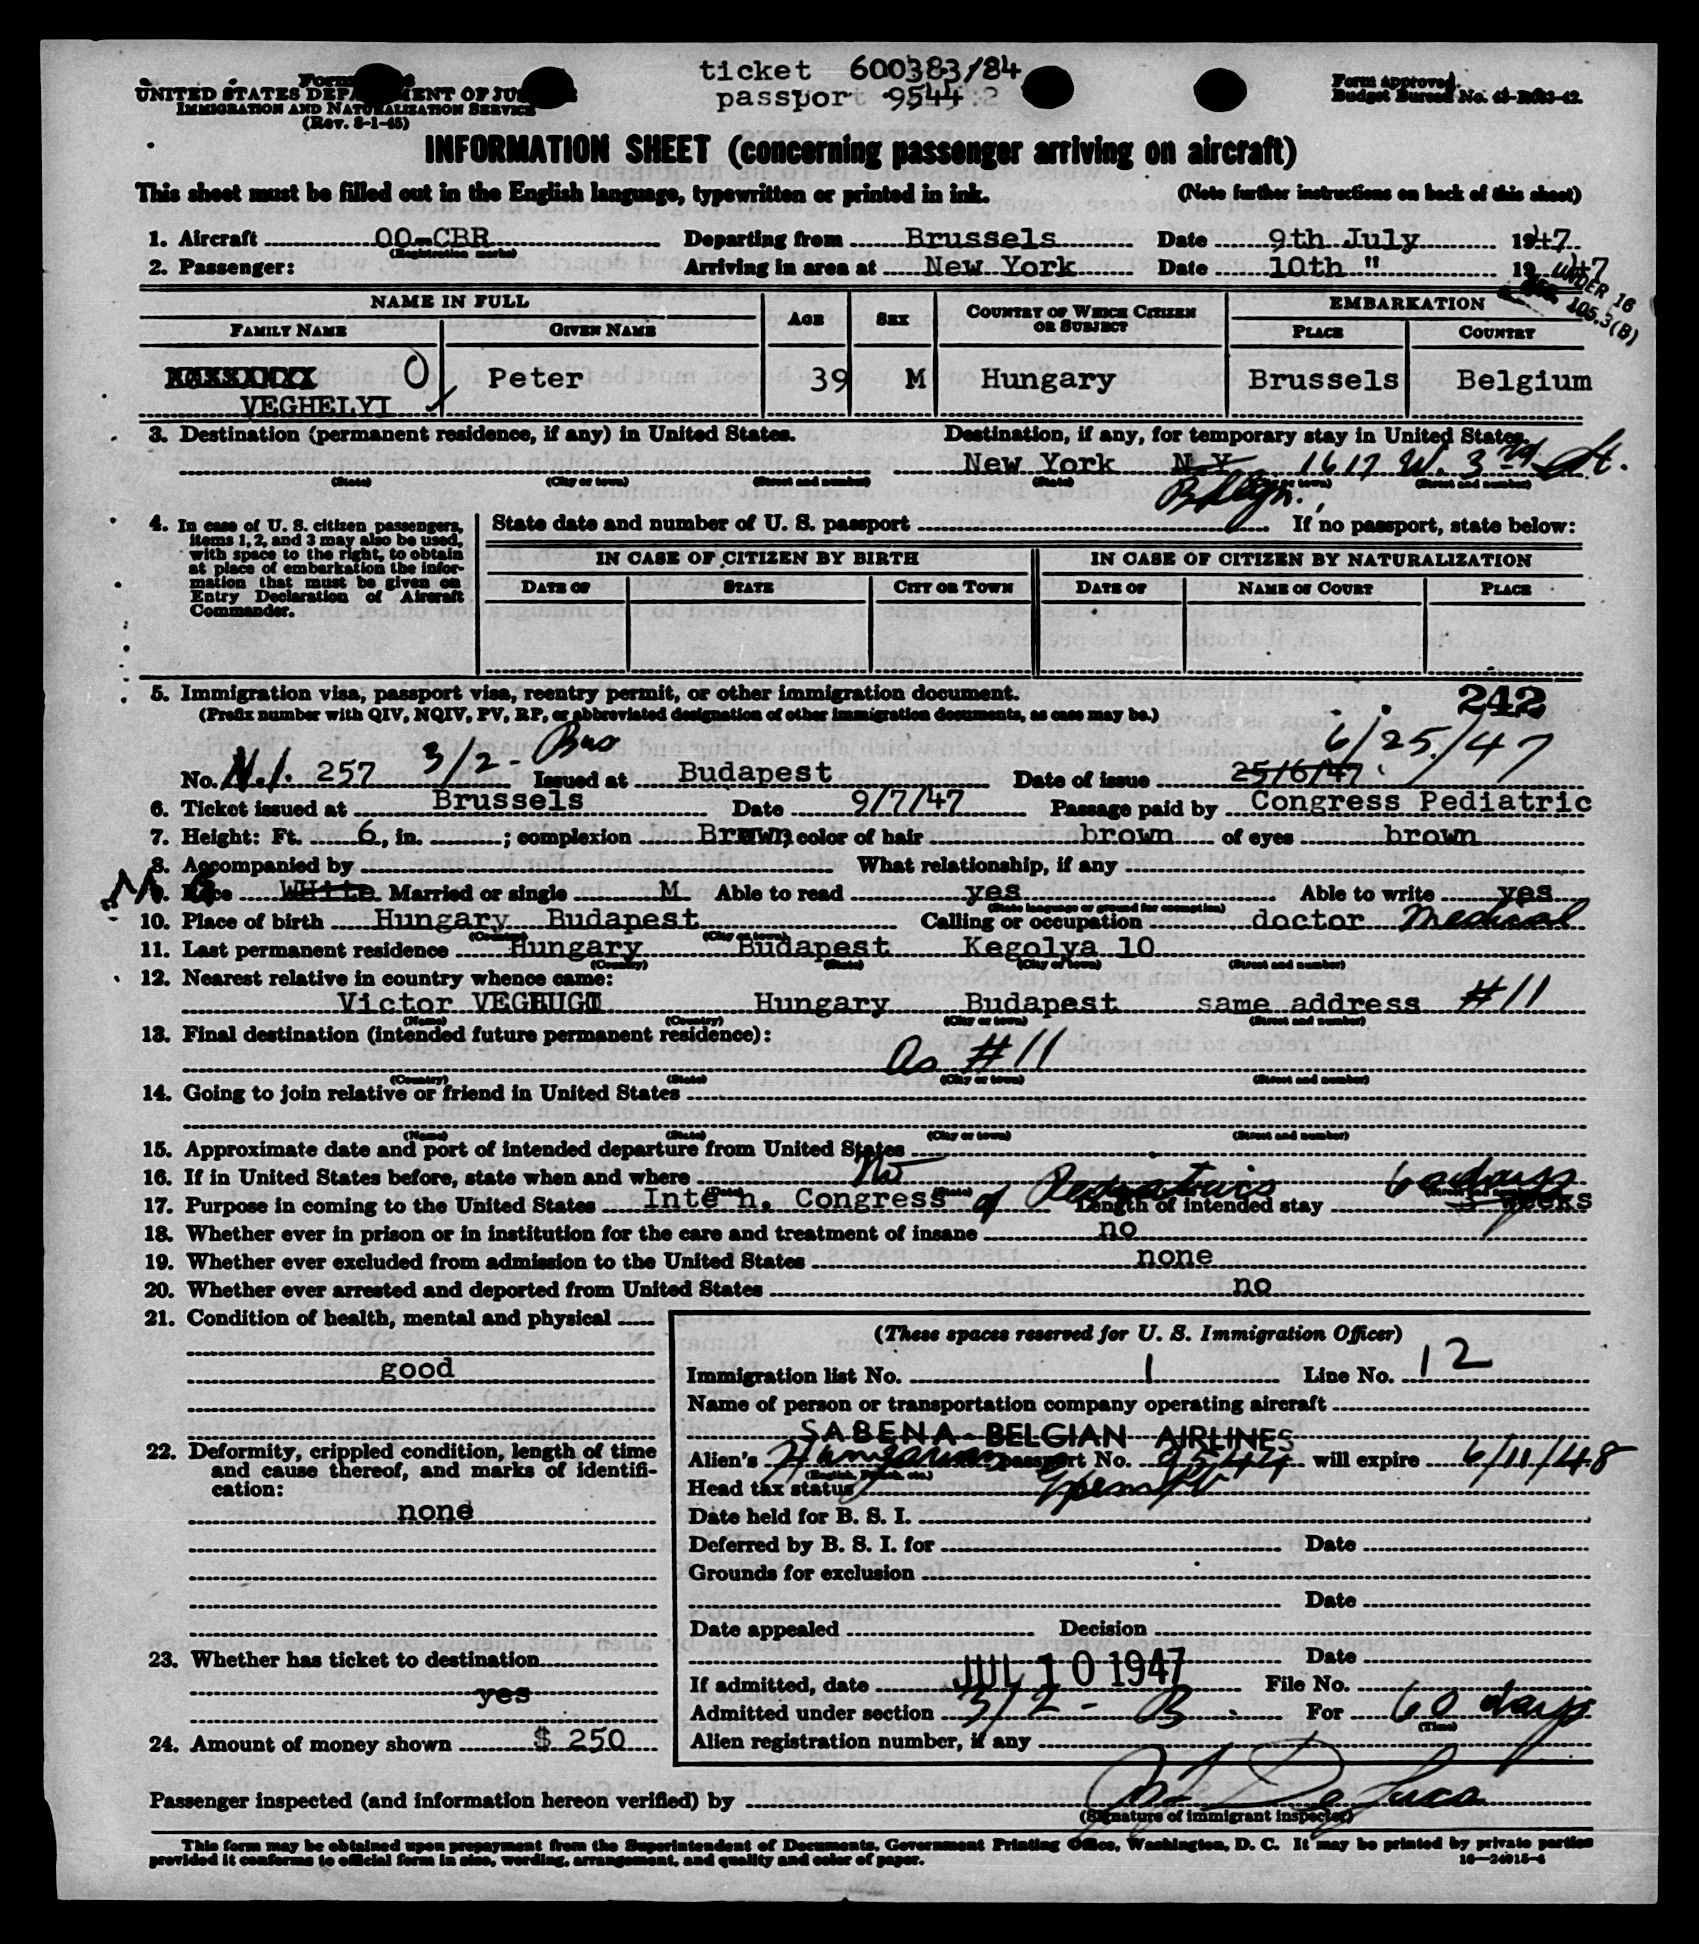 ticket 600383/84
passport 9544
UNITED STATES DEPARTMENT OF JUSTICE
IMMIGRATION AND NATURALIZATION SERVICE
(Rev. 8-1-45)
Form approved.
Budget Bureau No.
INFORMATION SHEET (concerning passenger arriving on aircraft)
This sheet must be filled out in the English language, typewritten or printed in ink. (Note further instructions on back of this sheet)
1. Aircraft OO-CBR Departing from Brussels Date 9th July 1947
(Registration marks)
2. Passenger: Arriving in area at New York Date 10th " 1947
UNDER 16
105.3(B)
NAME IN FULL AGE SEX COUNTRY OF WHICH CITIZEN OR SUBJECT EMBARKATION
FAMILY NAME GIVEN NAME PLACE COUNTRY
VEGHELYI Peter 39 M Hungary Brussels Belgium
3. Destination (permanent residence, if any) in United States. Destination, if any, for temporary stay in United States.
New York N.Y. 1617 W. 3rd St.
(State) (City or town) (Street and number) (State) (City or town) (Street and number)
Bklyn.
4. In case of U. S. citizen passengers, items 1, 2, and 3 may also be used, with space to the right, to obtain at place of embarkation the information that must be given on Entry Declaration of Aircraft Commander.
State date and number of U. S. passport If no passport, state below:
IN CASE OF CITIZEN BY BIRTH IN CASE OF CITIZEN BY NATURALIZATION
DATE OF STATE CITY OR TOWN DATE OF NAME OF COURT PLACE
5. Immigration visa, passport visa, reentry permit, or other immigration document. 242
(Prefix number with QIV, NQIV, PV, RP, or abbreviated designation of other immigration documents, as case may be.)
No. 257 3/2 - Bus Issued at Budapest Date of issue 25/6/47 6/25/47
6. Ticket issued at Brussels Date 9/7/47 Passage paid by Congress Pediatric
7. Height: Ft. 6, in. ; complexion Brown, color of hair brown of eyes brown
8. Accompanied by What relationship, if any
9. Race White Married or single M Able to read yes Able to write yes
(State language or ground for exemption)
10. Place of birth Hungary Budapest Calling or occupation doctor Medical
(Country) (City or town)
11. Last permanent residence Hungary Budapest Kegolya 10
(Country) (State) (City or town) (Street and number)
12. Nearest relative in country whence came:
Victor Hungary Budapest same address #11
(Name) (Country) (City or town) (Street and number)
13. Final destination (intended future permanent residence):
As #11
(Country) (State) (City or town) (Street and number)
14. Going to join relative or friend in United States
(Name) (State) (City or town) (Street and number)
15. Approximate date and port of intended departure from United States
16. If in United States before, state when and where No
17. Purpose in coming to the United States Inte n. Congress of Pediatrics Length of intended stay weeks 60 days
18. Whether ever in prison or in institution for the care and treatment of insane no
19. Whether ever excluded from admission to the United States none
20. Whether ever arrested and deported from United States no
21. Condition of health, mental and physical
good
22. Deformity, crippled condition, length of time and cause thereof, and marks of identification:
none
23. Whether has ticket to destination
yes
24. Amount of money shown $ 250
(These spaces reserved for U. S. Immigration Officer)
Immigration list No. 1 Line No. 12
Name of person or transportation company operating aircraft
SABENA-BELGIAN AIRLINES
Alien's Hungarian passport No. 9544 will expire 6/11/48
(English, French, etc.)
Head tax status Exempt
Date held for B. S. I.
Deferred by B. S. I. for Date
Grounds for exclusion
Date
Date appealed Decision
Date
If admitted, date JUL 10 1947 File No.
Admitted under section 3/2 - B For 60 days
(Time)
Alien registration number, if any
Passenger inspected (and information hereon verified) by
(Signature of immigrant inspector)
This form may be obtained upon prepayment from the Superintendent of Documents, Government Printing Office, Washington, D. C. It may be printed by private parties
provided it conforms to official form in size, wording, arrangement, and quality and color of paper. 16—24915-4